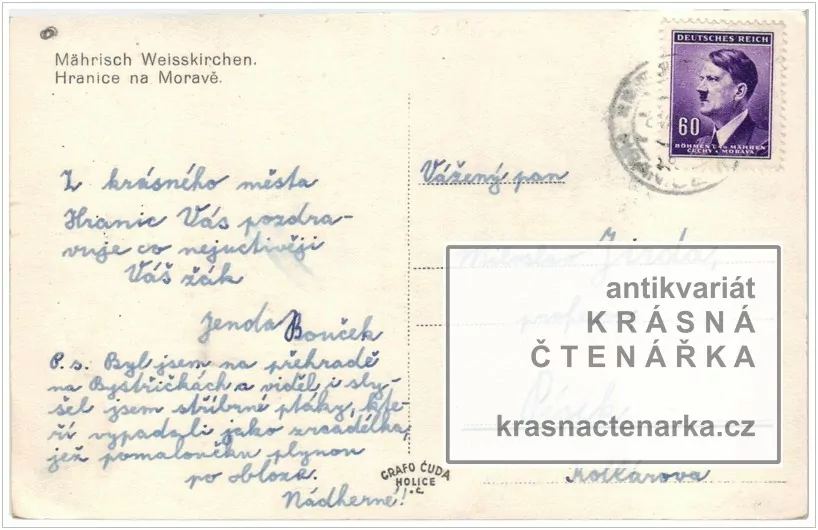 Mährisch Weisskirchen.
Hranice na Moravě.
DEUTSCHES REICH
60
BÖHMEN u. MÄHREN
ČECHY a MORAVA
Z krásného města
Hranic Vás pozdra-
vuje co nejuctivěji
Váš žák
Jenda Bouček
P. s. Byl jsem na přehradě
na Bystřičkách a viděl i sly-
šel jsem stříbrné ptáky, kte-
ří vypadali jako zrcadélka,
jež pomaloučku plynou
po obloze.
Nádherné!
GRAFO ČUDA
HOLICE
Vážený pan
Miloslav Jirda,
profesor
Písek
Kollárova
antikvariát
KRÁSNÁ
ČTENÁŘKA
krasnactenarka.cz